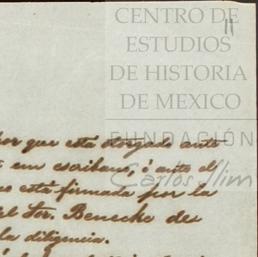 CENTRO DE
ESTUDIOS
DE HISTORIA
DE MEXICO
FUNDACIÓN
Carlos Slim
11
por que está otorgado ante
em escribano, ó ante el
está firmada por la
el Sor. Benecke de
la diligencia.